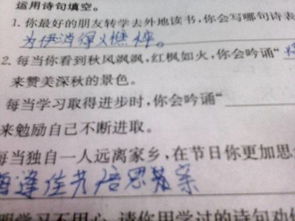 运用诗句填空。
1. 你最好的朋友转学去外地读书，你会写哪句诗表
为伊消得人憔悴。
2. 每当你看到秋风飒飒，红枫如火，你会吟诵“
来赞美深秋的景色。
每当学习取得进步时，你会吟诵“
来勉励自己不断进取。
每当独自一人远离家乡，在节日你更加思
逢佳节倍思亲
请你用学过的诗句劝